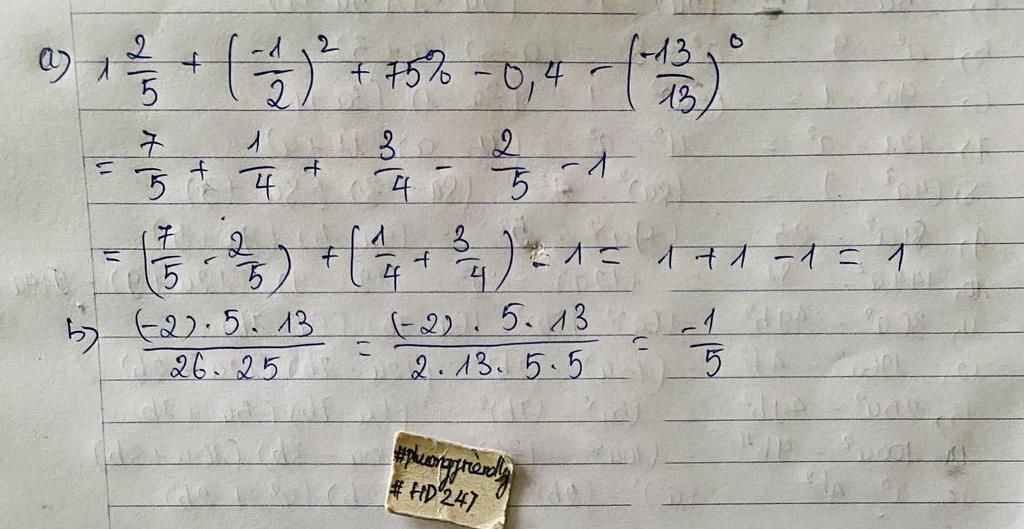 a) 1 2/5 + (-1/2)² + 75% - 0,4 - (-13/13)⁰
= 7/5 + 1/4 + 3/4 - 2/5 - 1
= (7/5 - 2/5) + (1/4 + 3/4) - 1 = 1 + 1 - 1 = 1
b) (-2) . 5 . 13 / 26 . 25 = (-2) . 5 . 13 / 2 . 13 . 5 . 5 = -1/5
#phuongfriendly
# HD 247